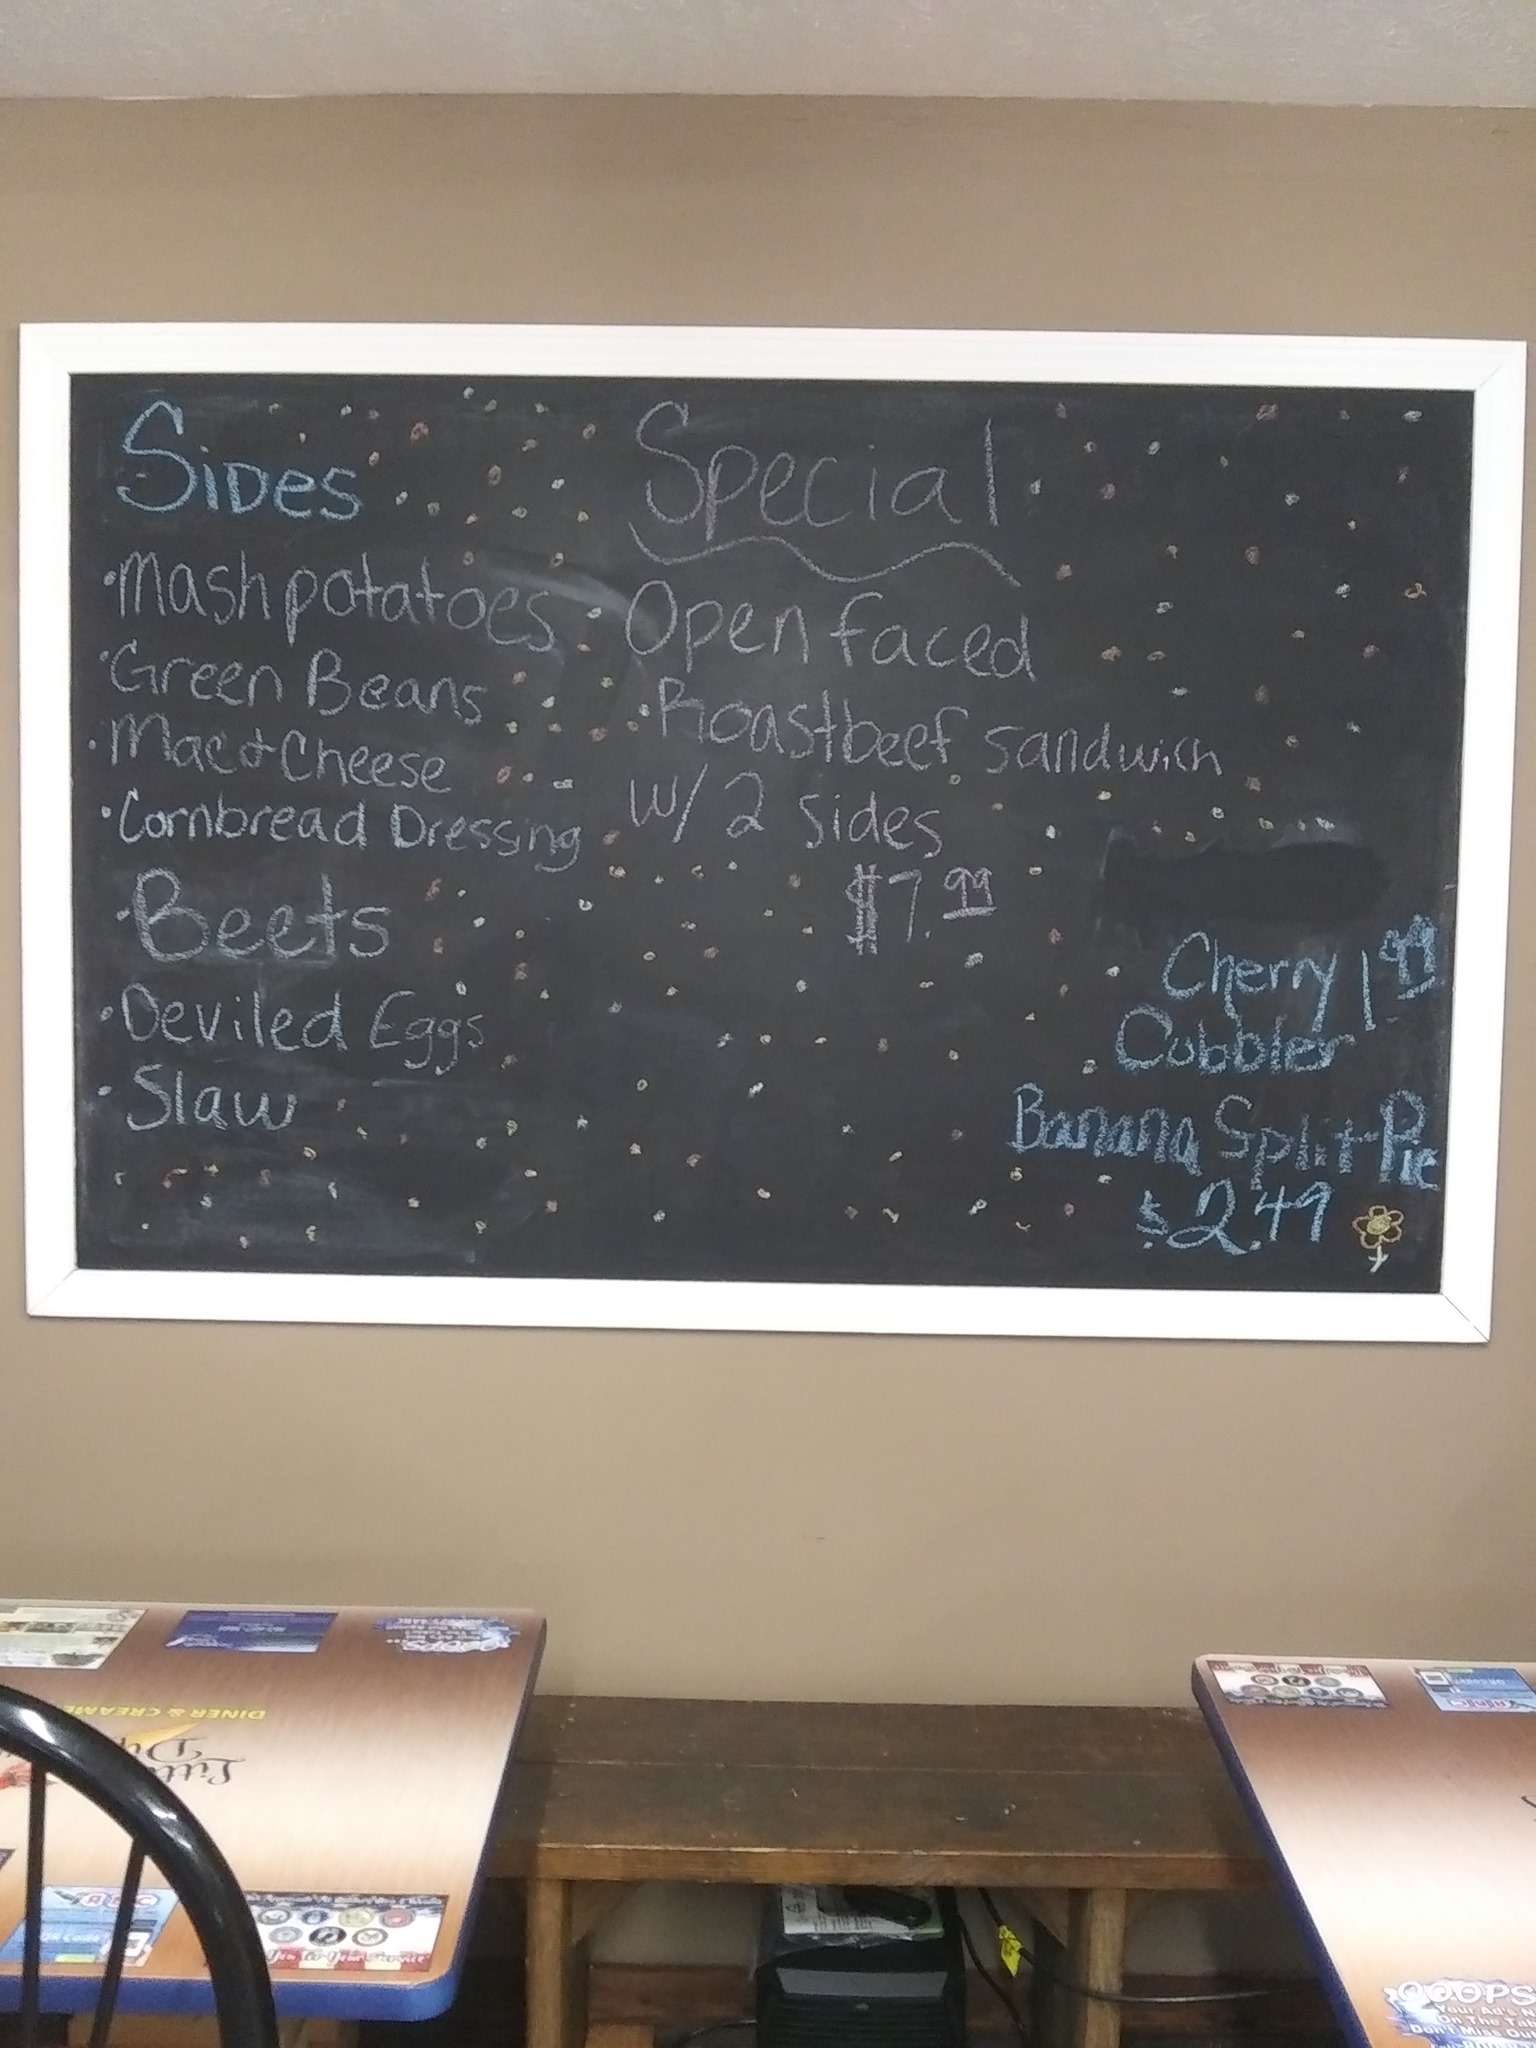 Sides
•Mashpotatoes
•Green Beans
•Mac & Cheese
•Cornbread Dressing
•Beets
•Deviled Eggs
•Slaw
Special
Open faced
Roastbeef sandwich
w/ 2 sides
$7.99
Cherry 1 99
Cobbler
Banana Split Pie
$2.49
DINER & CREAME
OOOPS
OOOPS
Your Ad's N
On The Tab
Don't Miss Ou